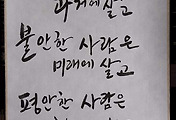 과거에 살고
불안한 사람은
미래에 살고
평안한 사람은